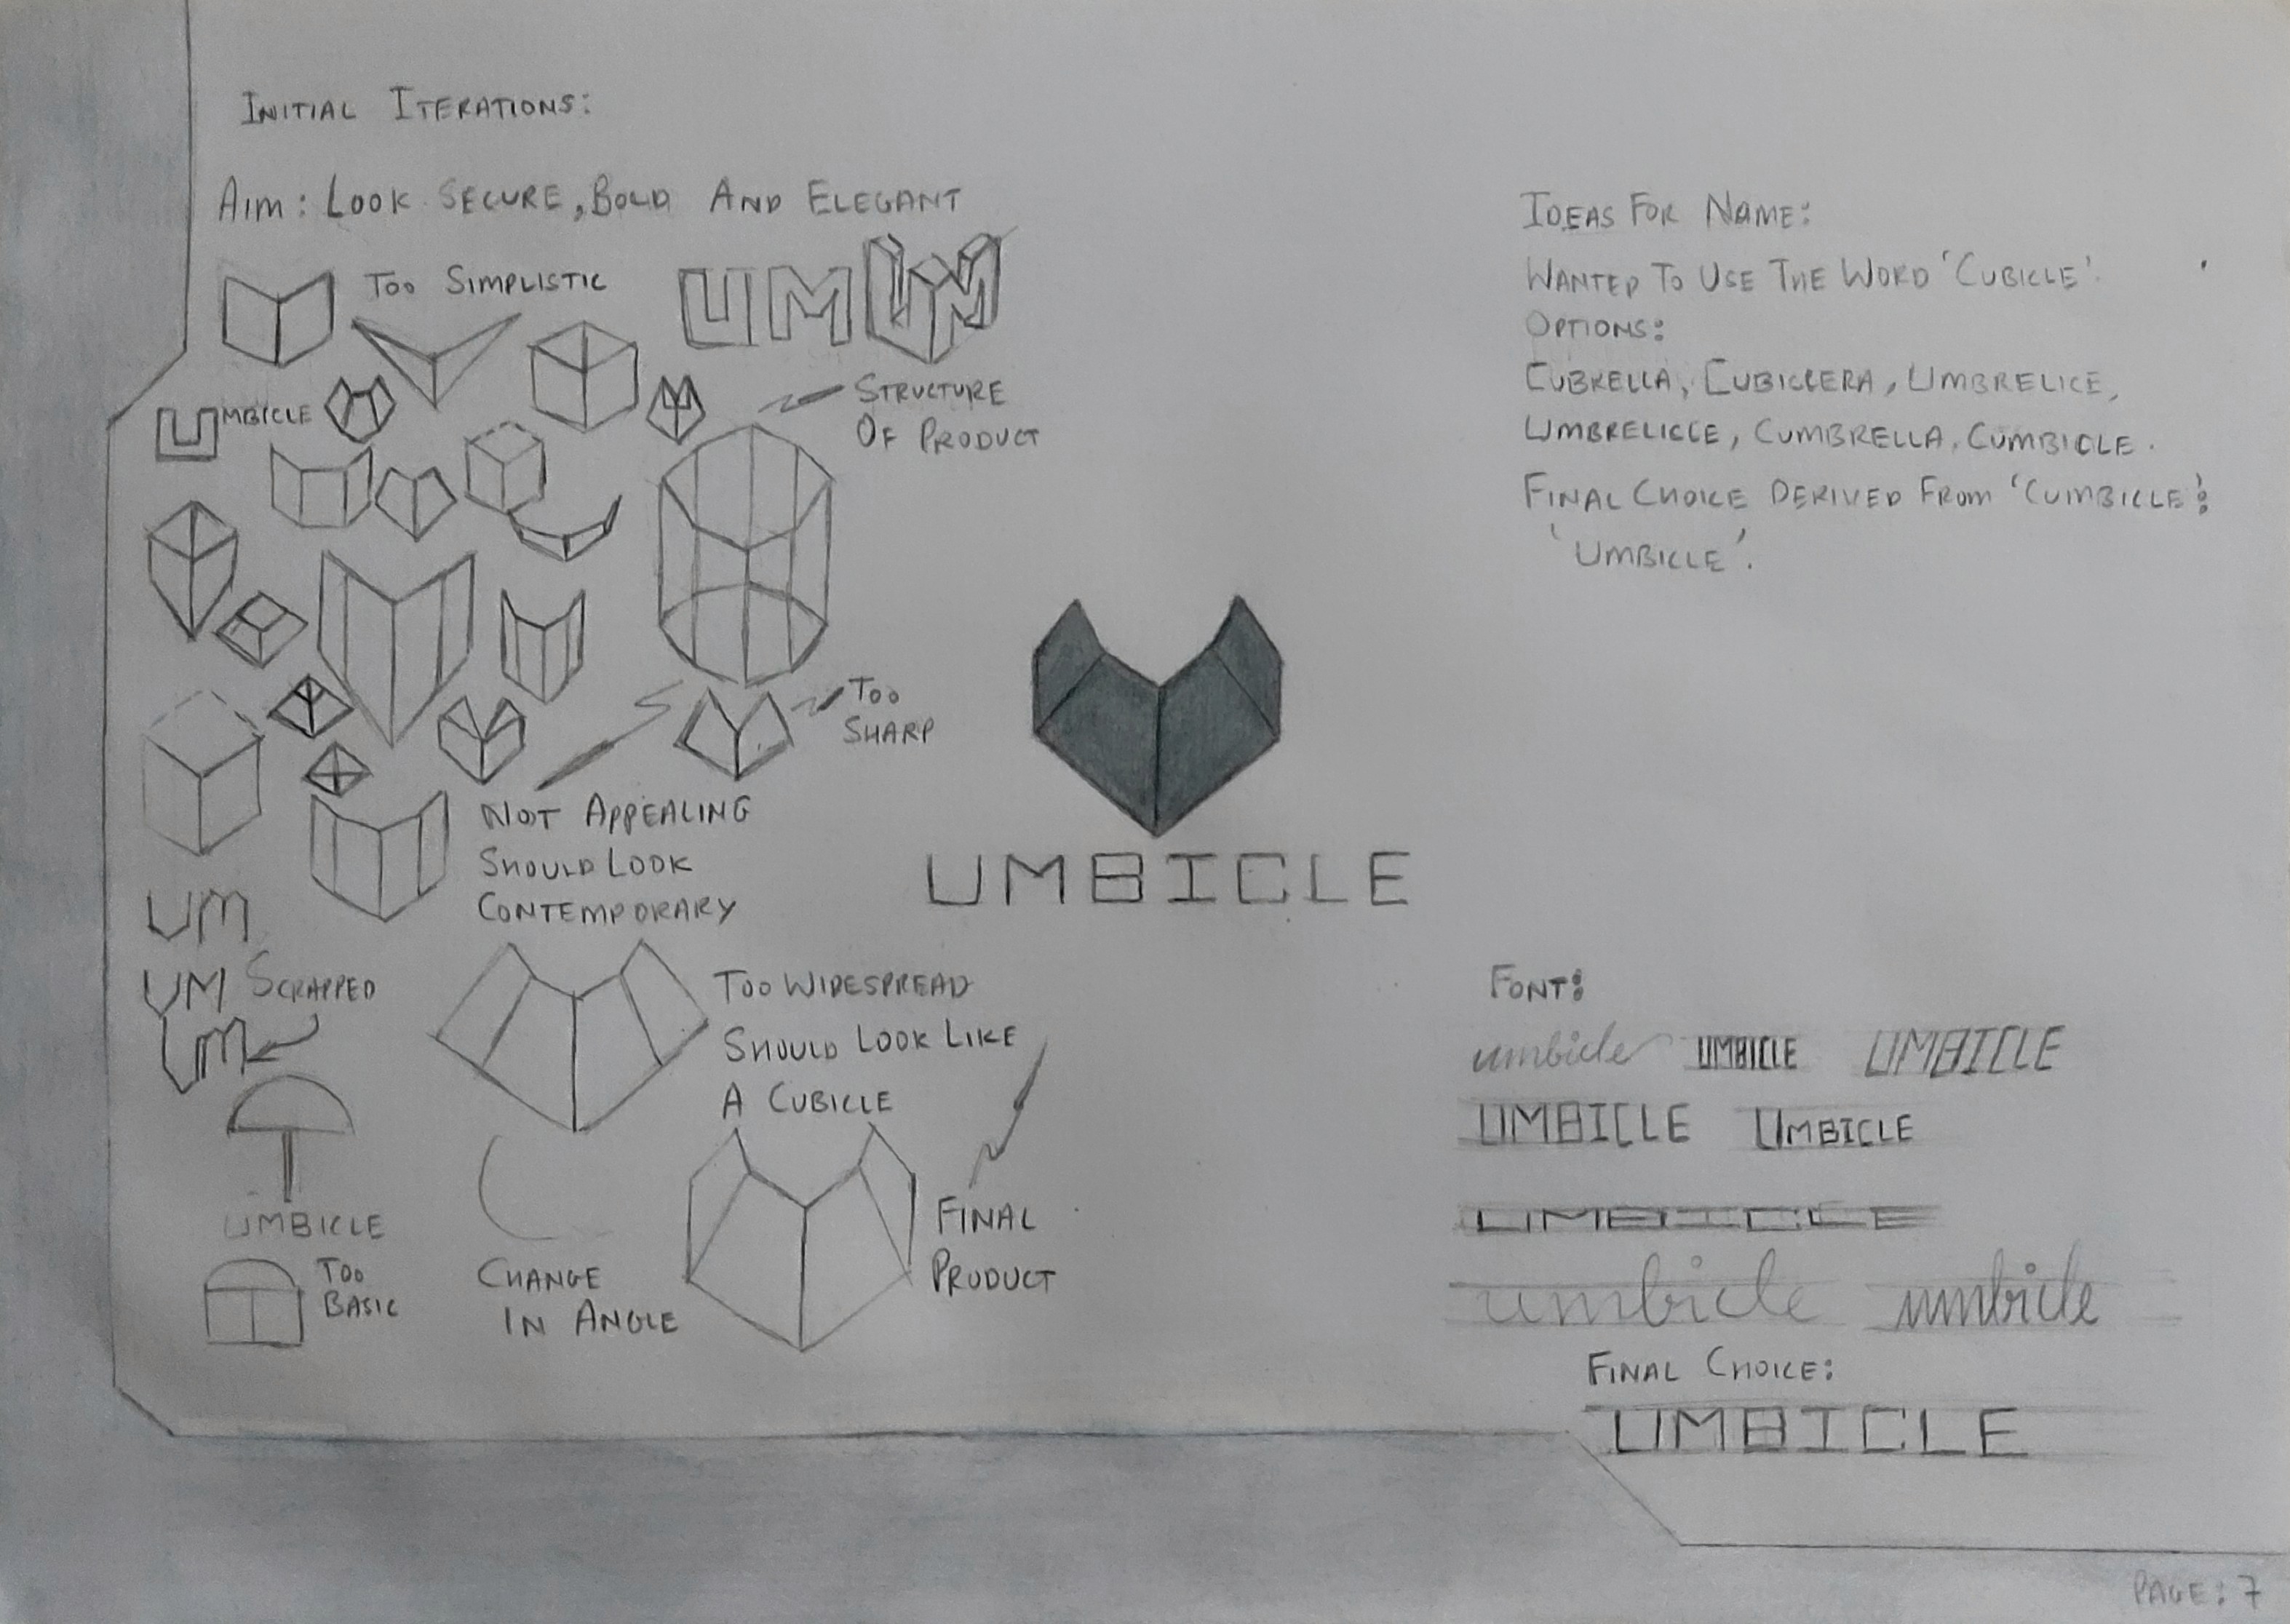 INITIAL ITERATIONS:
AIM: LOOK SECURE, BOLD AND ELEGANT
TOO SIMPLISTIC
UM UM
STRUCTURE
OF PRODUCT
UMBICLE
TOO
SHARP
NOT APPEALING
SHOULD LOOK
CONTEMPORARY
UM
UM SCRAPPED
UM
TOO WIDESPREAD
SHOULD LOOK LIKE
A CUBICLE
UMBICLE
TOO
BASIC
CHANGE
IN ANGLE
FINAL
PRODUCT
UMBICLE
IDEAS FOR NAME:
WANTED TO USE THE WORD 'CUBICLE'.
OPTIONS:
CUBRELLA, CUBICLERA, UMBRELICE,
UMBRELICLE, CUMBRELLA, CUMBICLE.
FINAL CHOICE DERIVED FROM 'CUMBICLE':
'UMBICLE'.
FONT:
umbicle UMBICLE UMBICLE
UMBICLE UMBICLE
UMBICLE
umbicle umbicle
FINAL CHOICE:
UMBICLE
PAGE: 7